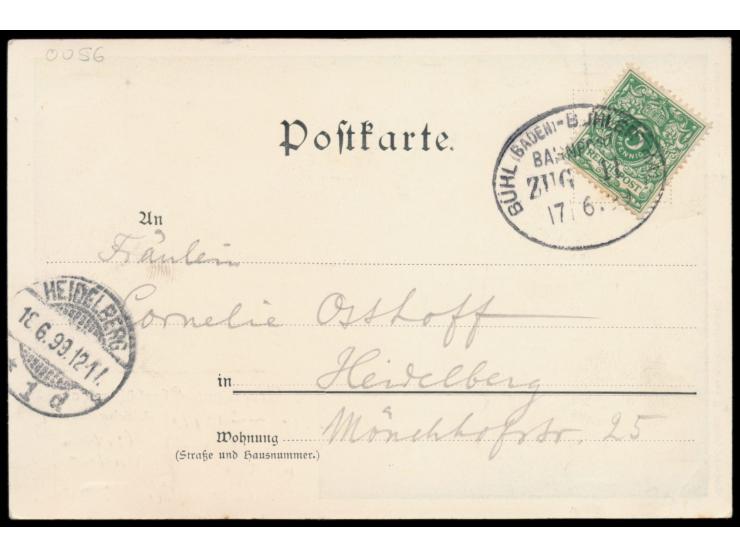 0056
Postkarte.
BÜHL (BADEN)-BÜHLERTHAL
BAHNPOST
ZUG 11
17 6
5
PFENNIG
REICHSPOST
An
Fräulein
Cornelie Osthoff
in Heidelberg
Wohnung Mönchhofstr. 25
(Straße und Hausnummer.)
HEIDELBERG
18.6.99.12-1V.
* 1 d